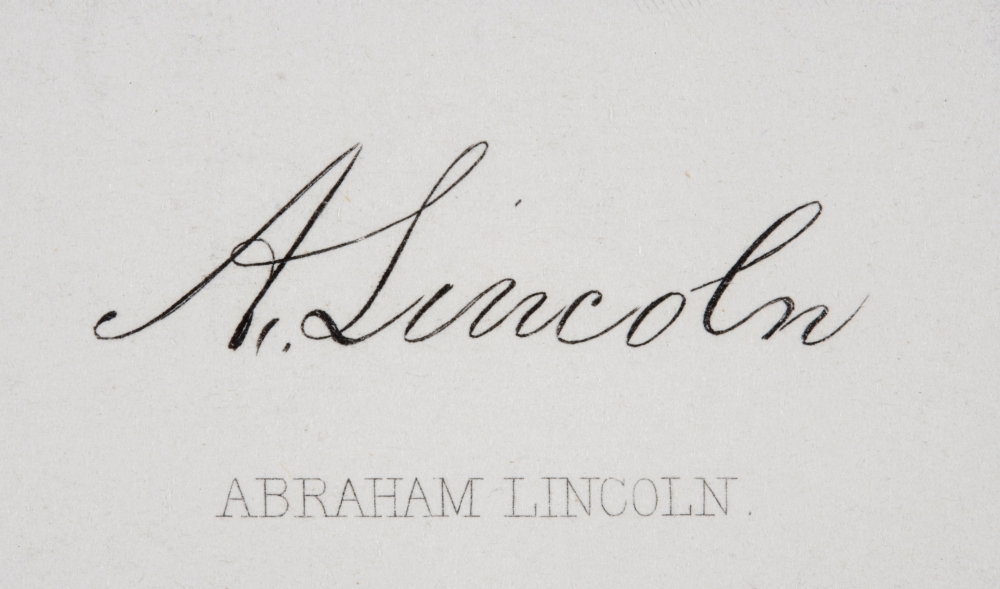 A. Lincoln
ABRAHAM LINCOLN.